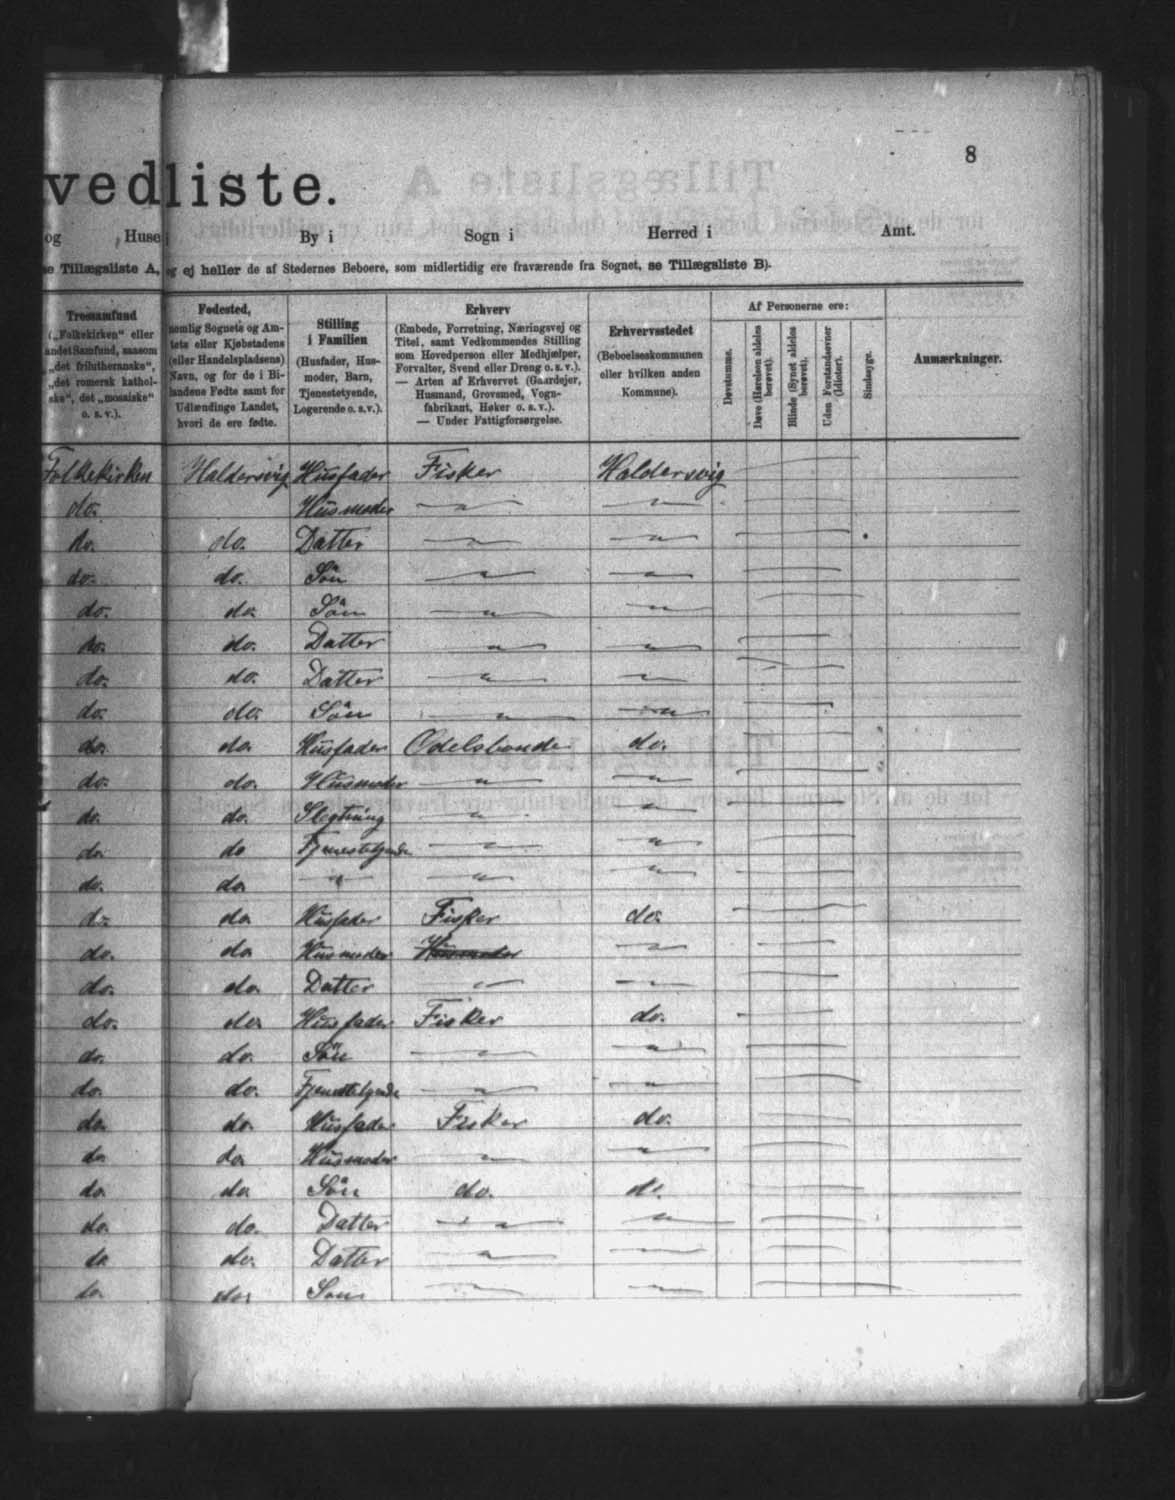 8
vedliste.
og Huse i By i Sogn i Herred i Amt.
se Tillægsliste A, og ej heller de af Stedernes Beboere, som midlertidig ere fraværende fra Sognet, se Tillægsliste B).
Trossamfund
("Folkekirken" eller
andet Samfund, saasom
"det frilutheranske",
"det romersk kathol-
ske", det "mosaiske"
o. s. v.).
Fødested,
nemlig Sognets og Am-
tets eller Kjøbstadens
(eller Handelspladsens)
Navn, og for de i Bi-
landene Fødte samt for
Udlændinge Landet,
hvori de ere fødte.
Stilling
i Familien
(Husfader, Hus-
moder, Barn,
Tjenestetyende,
Logerende o. s. v.).
Erhverv
(Embede, Forretning, Næringsvej og
Titel, samt Vedkommendes Stilling
som Hovedperson eller Medhjælper,
Forvalter, Svend eller Dreng o. s. v.).
— Arten af Erhvervet (Gaardejer,
Husmand, Grovsmed, Vogn-
fabrikant, Høker o. s. v.).
— Under Fattigforsørgelse.
Erhvervsstedet
(Beboelseskommunen
eller hvilken anden
Kommune).
Af Personerne ere:
Døvstumme.
Døve (Hørelsen aldeles
berøvet).
Blinde (Synet aldeles
berøvet).
Uden Forstandsevner
(Idioter).
Sindssyge.
Anmærkninger.
Folkekirken Haldersvig Husfader Fisker Haldersvig
do. Husmoder — " — — " —
do. do. Datter — " — — " —
do. do. Sön — " — — " —
do. do. Sön — " — — " —
do. do. Datter — " — — " —
do. do. Datter — " — — " —
do. do. Sön — " — — " —
do. do. Husfader Odelsbonde do.
do. do. Husmoder — " — — " —
do. do. Slegtning — " — — " —
do. do Tjenestetyende — " — — " —
do. do. — " — — " — — " —
do. do. Husfader Fisker do.
do. do. Husmoder Husmoder — " —
do. do. Datter — " — — " —
do. do. Husfader Fisker do.
do. do. Sön — " — — " —
do. do. Tjenestetyende — " — — " —
do. do. Husfader Fisker do.
do. do. Husmoder — " — — " —
do. do. Sön do. do.
do. do. Datter — " — — " —
do. do. Datter — " — — " —
do. do. Sön — " — — " —